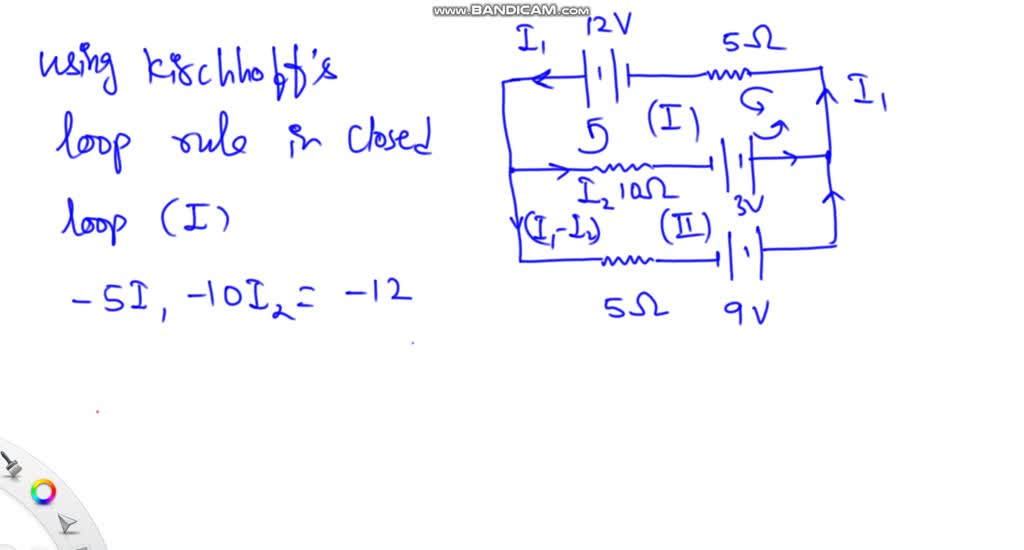 www.BANDICAM.com
using Kirchhoff's
loop rule in closed
loop (I)
-5I₁ -10I₂ = -12
I₁ 12V 5Ω
I₁
(I)
I₂ 10Ω 3V
(I₁-I₂) (II)
5Ω 9V